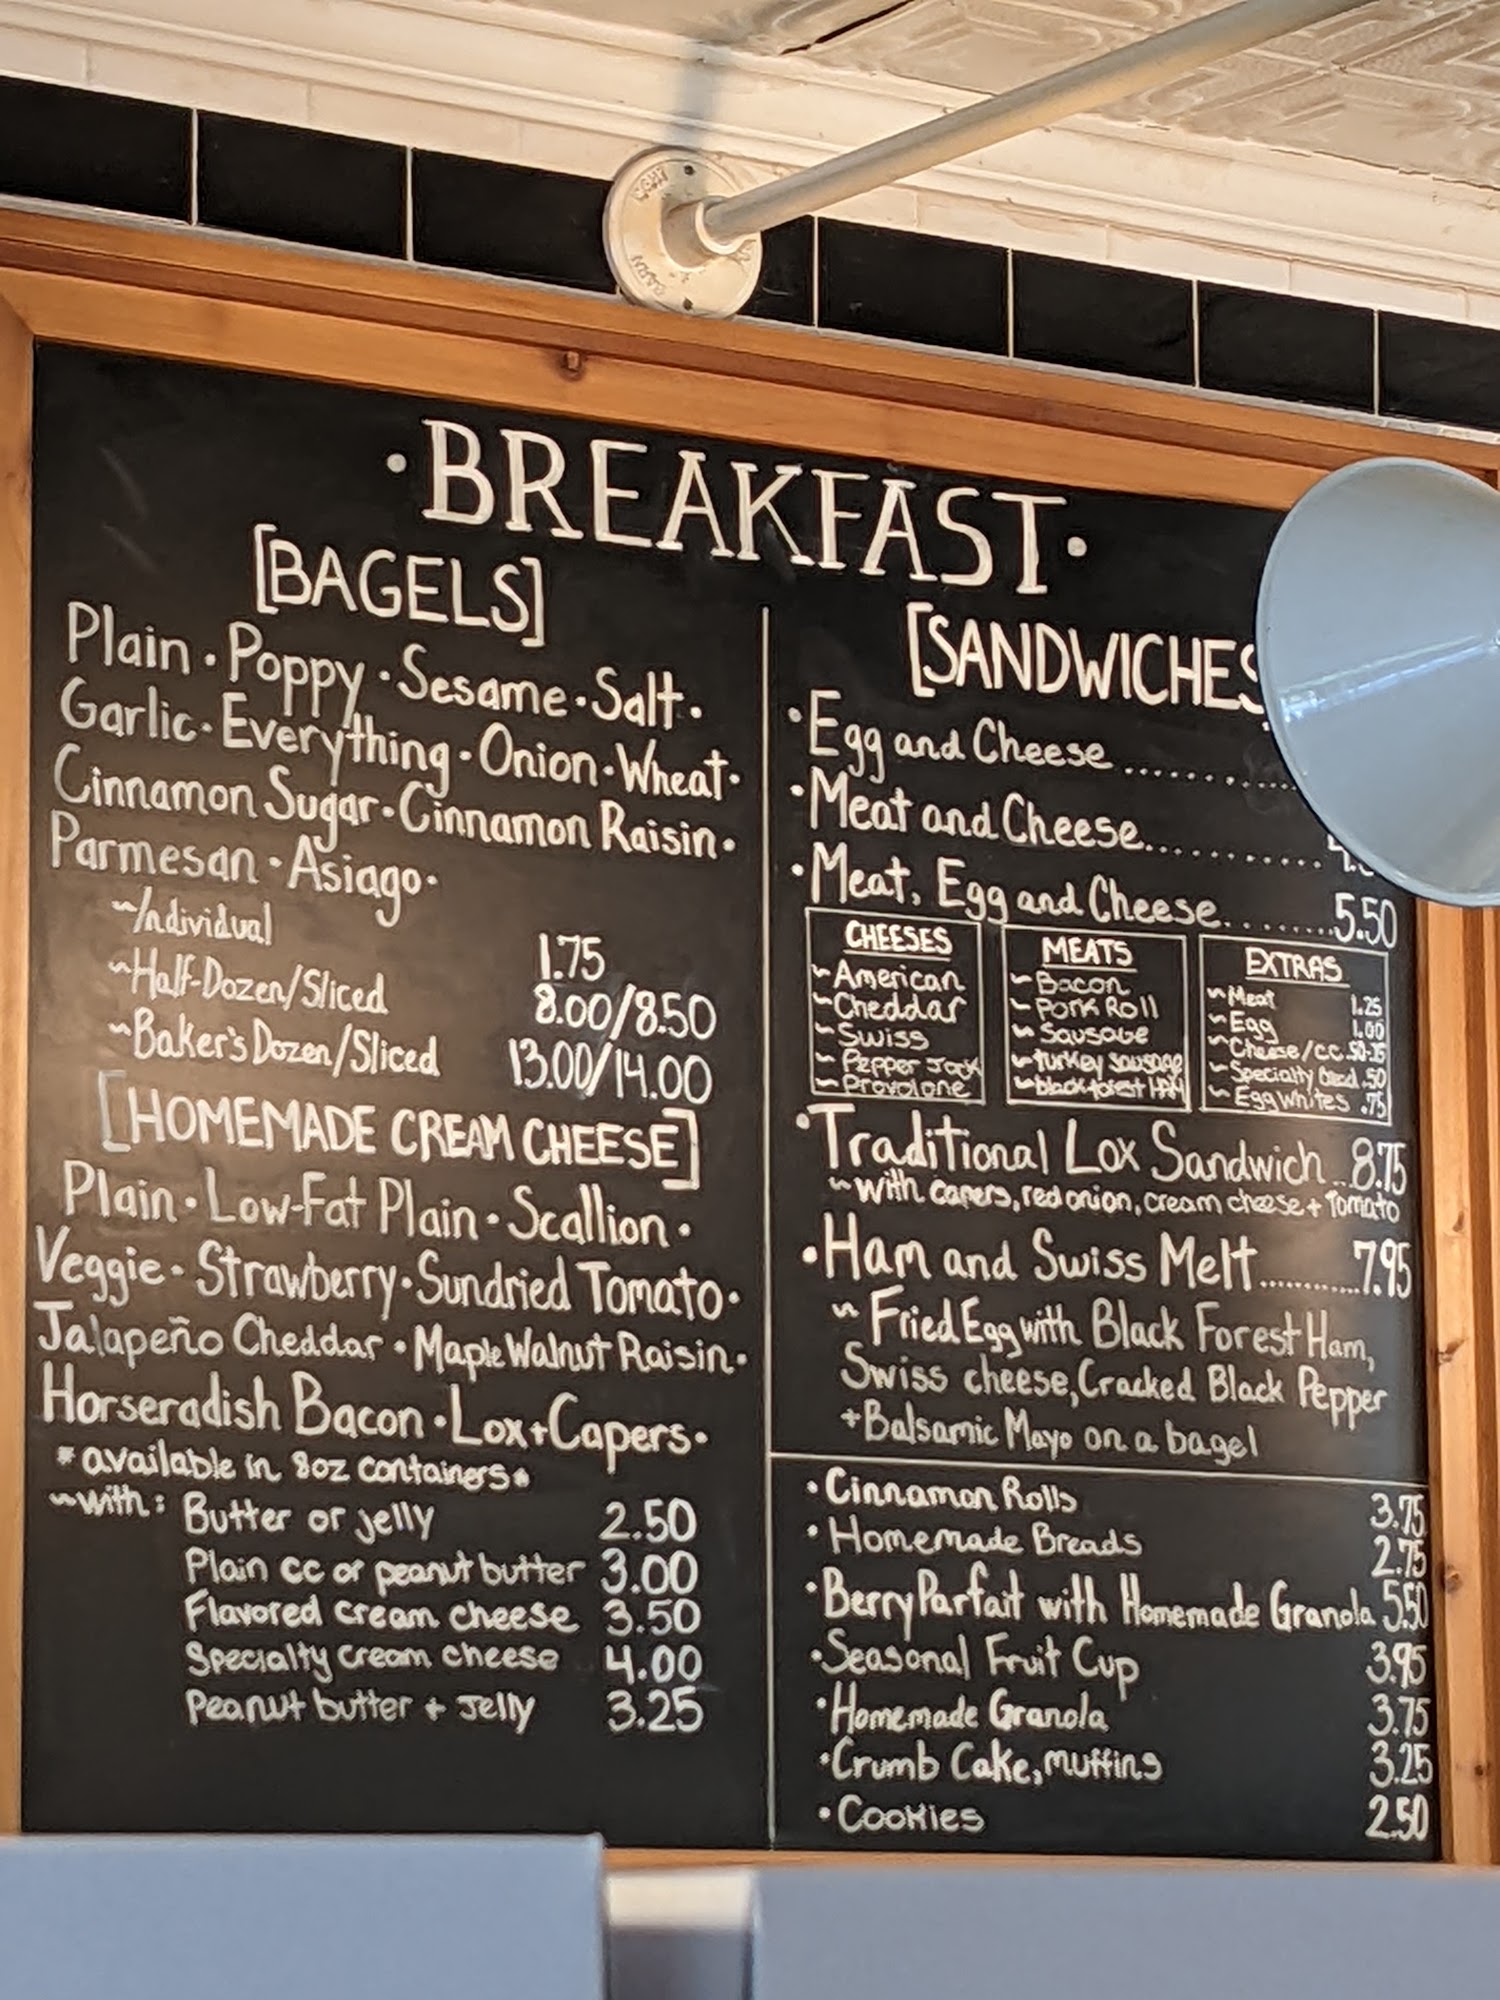 ·BREAKFAST·
[BAGELS]
Plain · Poppy · Sesame · Salt ·
Garlic · Everything · Onion · Wheat ·
Cinnamon Sugar · Cinnamon Raisin ·
Parmesan · Asiago ·
~Individual 1.75
~Half-Dozen/Sliced 8.00/8.50
~Baker's Dozen/Sliced 13.00/14.00
[HOMEMADE CREAM CHEESE]
Plain · Low-Fat Plain · Scallion ·
Veggie · Strawberry · Sundried Tomato ·
Jalapeño Cheddar · Maple Walnut Raisin ·
Horseradish Bacon · Lox + Capers ·
*available in 8oz containers*
~with: Butter or jelly 2.50
Plain cc or peanut butter 3.00
Flavored cream cheese 3.50
Specialty cream cheese 4.00
Peanut butter + Jelly 3.25
[SANDWICHES
· Egg and Cheese ..........
· Meat and Cheese............
· Meat, Egg and Cheese.........5.50
CHEESES
~ American
~ Cheddar
~ Swiss
~ Pepper Jack
~ Provolone
MEATS
~ Bacon
~ Pork Roll
~ Sausage
~ turkey sausage
~ black forest HAM
EXTRAS
~ Meat 1.25
~ Egg 1.00
~ Cheese/cc .50-.75
~ Specialty bread .50
~ Egg Whites .75
· Traditional Lox Sandwich..8.75
~ with capers, red onion, cream cheese + Tomato
· Ham and Swiss Melt..........7.95
~ Fried Egg with Black Forest Ham,
Swiss cheese, Cracked Black Pepper
+ Balsamic Mayo on a bagel
· Cinnamon Rolls 3.75
· Homemade Breads 2.75
· Berry Parfait with Homemade Granola 5.50
· Seasonal Fruit Cup 3.95
· Homemade Granola 3.75
· Crumb Cake, muffins 3.25
· Cookies 2.50